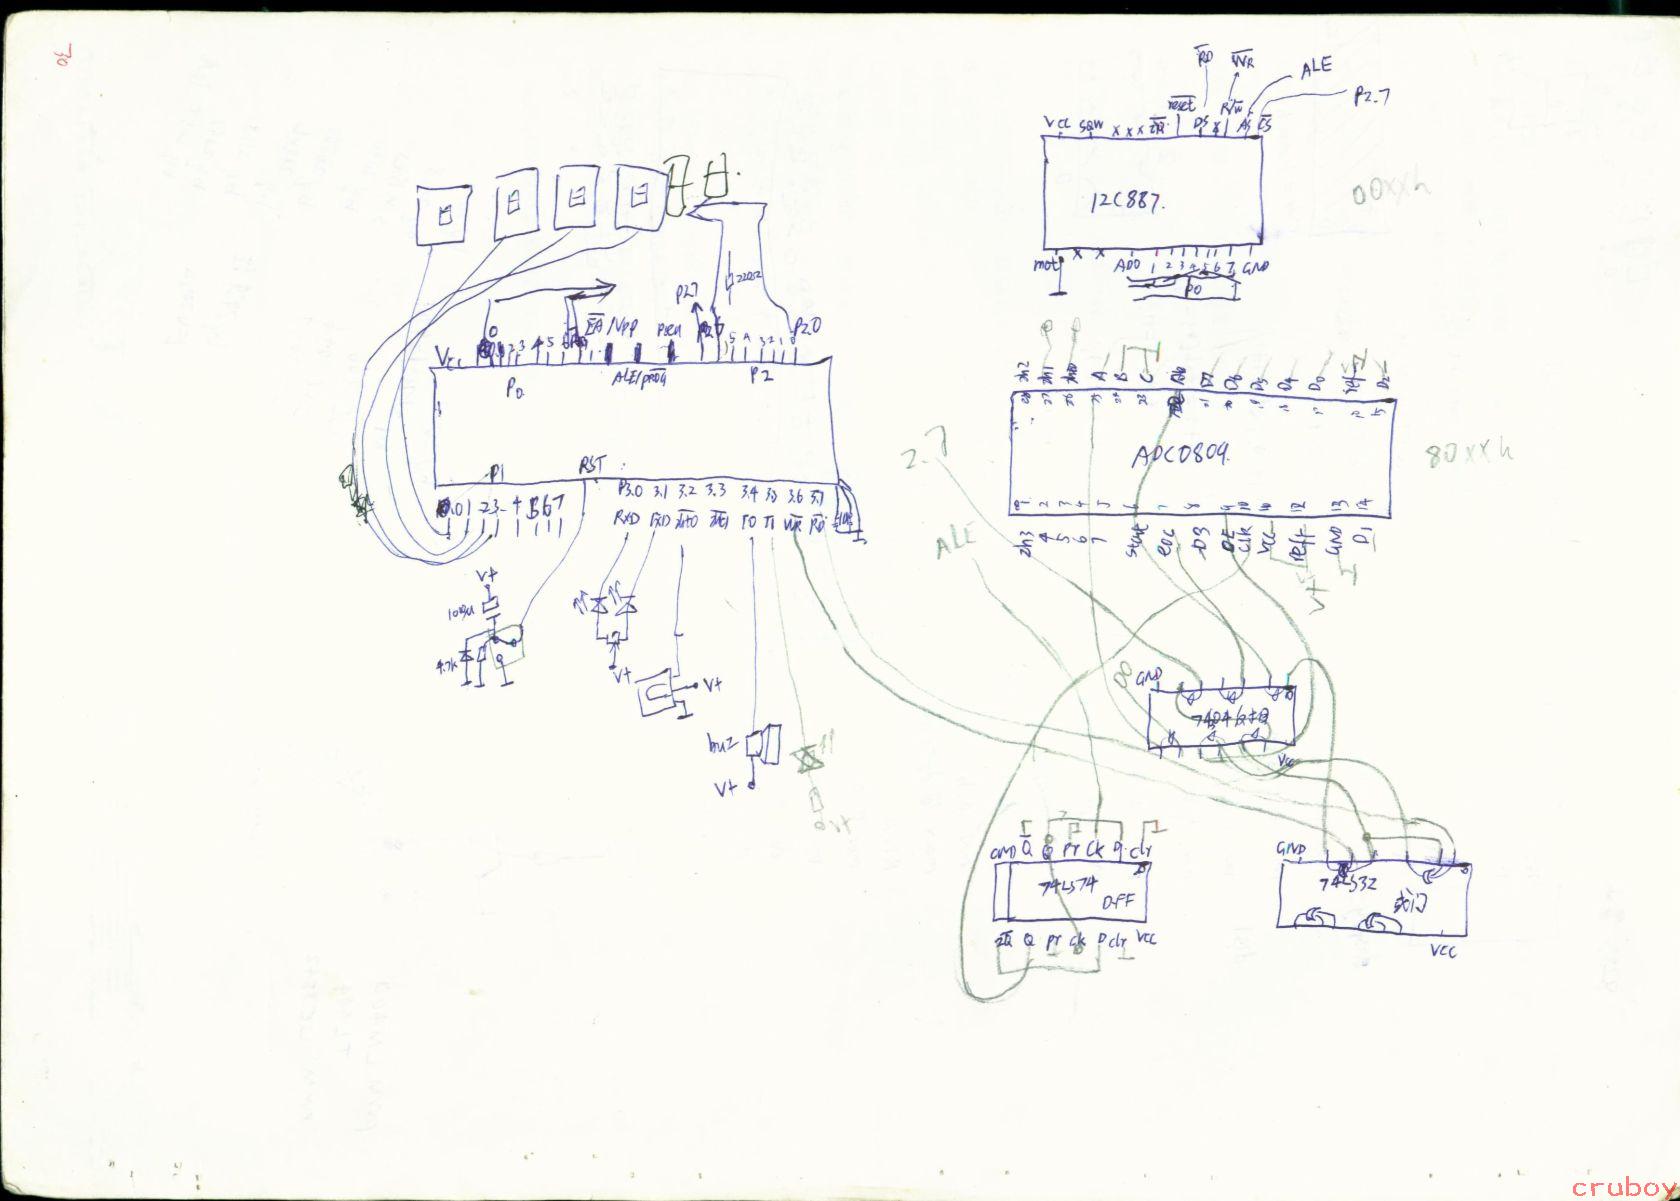 30
RD WR ALE
P2.7
reset R/W
VCC SQW x x x DS AS CS
12C887.
00xxh
mot x x AD0 1 2 3 4 5 6 7 GND
P0
220Ω
P27
0
EA/Vpp P20
Vcc 2 3 4 5 5 4 3 2 1
P0 ALE/prog P2
P1 RST
0 1 2 3 4 5 6 7
P3.0 3.1 3.2 3.3 3.4 3.5 3.6 3.7
RXD TXD INT0 INT1 T0 T1 WR RD
V+
4.7K
V+
V+
buz
V+
V+
A B C D7 D6 D5 D4 D0 D2
ADC0809.
80xxh
2.7
ALE
2h3 4 5 6 7 start eoc D3 OE clk VCC reff GND D1
V+
D0
GND
7404
Vcc
GND Q Q Pr Ck D clr
74LS74
DFF
2Q Q Pr Ck D clr VCC
GND
74LS32
或门
VCC
cruboy